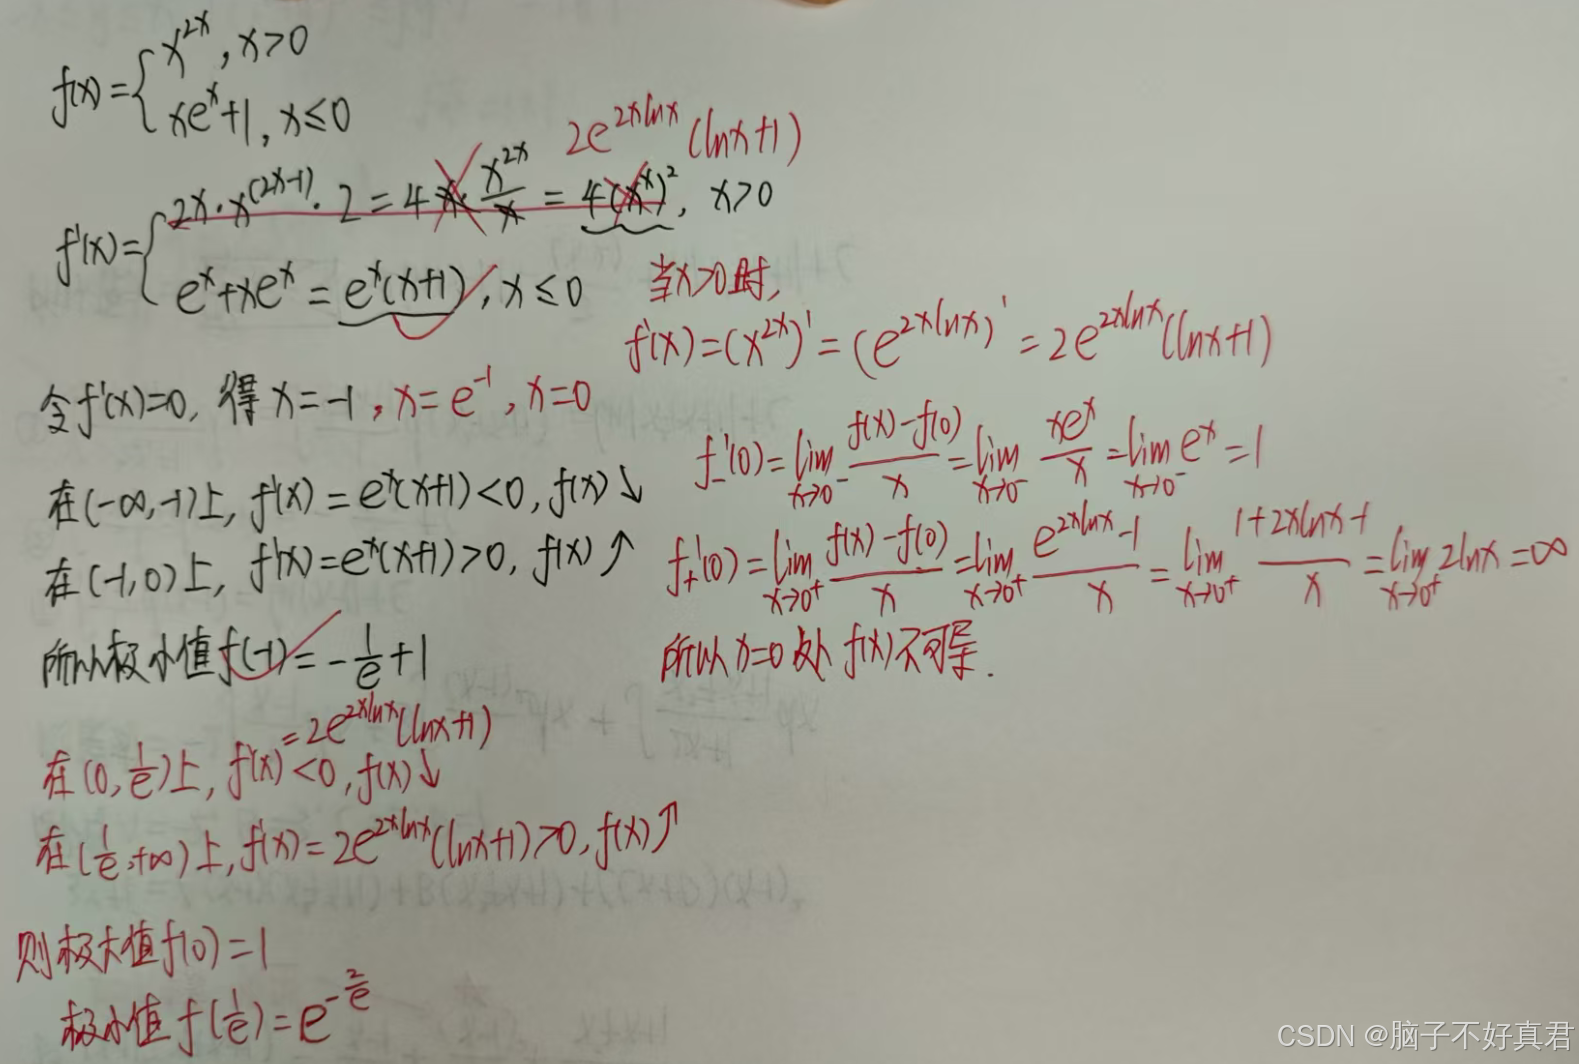 f(x)={x^{2x}, x>0
xe^x+1, x≤0
2e^{2xlnx}(lnx+1)
f'(x)={2x·x^{(2x-1)}·2=4x·x^{2x}/x=4(x^x)^2, x>0
e^x+xe^x=e^x(x+1), x≤0
当x>0时,
f'(x)=(x^{2x})'=(e^{2xlnx})'=2e^{2xlnx}(lnx+1)
令f'(x)=0, 得x=-1, x=e^{-1}, x=0
f'_-(0)=lim_{x→0^-} (f(x)-f(0))/x=lim_{x→0^-} xe^x/x=lim_{x→0^-} e^x=1
在(-∞,-1)上, f'(x)=e^x(x+1)<0, f(x)↓
f'_+(0)=lim_{x→0^+} (f(x)-f(0))/x=lim_{x→0^+} (e^{2xlnx}-1)/x=lim_{x→0^+} (1+2xlnx-1)/x=lim_{x→0^+} 2lnx=∞
在(-1,0)上, f'(x)=e^x(x+1)>0, f(x)↑
所以x=0处f(x)不可导.
所以极小值f(-1)=-1/e+1
=2e^{2xlnx}(lnx+1)
在(0,1/e)上, f'(x)<0, f(x)↓
在(1/e,+∞)上, f'(x)=2e^{2xlnx}(lnx+1)>0, f(x)↑
则极大值f(0)=1
极小值f(1/e)=e^{-2/e}
CSDN @脑子不好真君